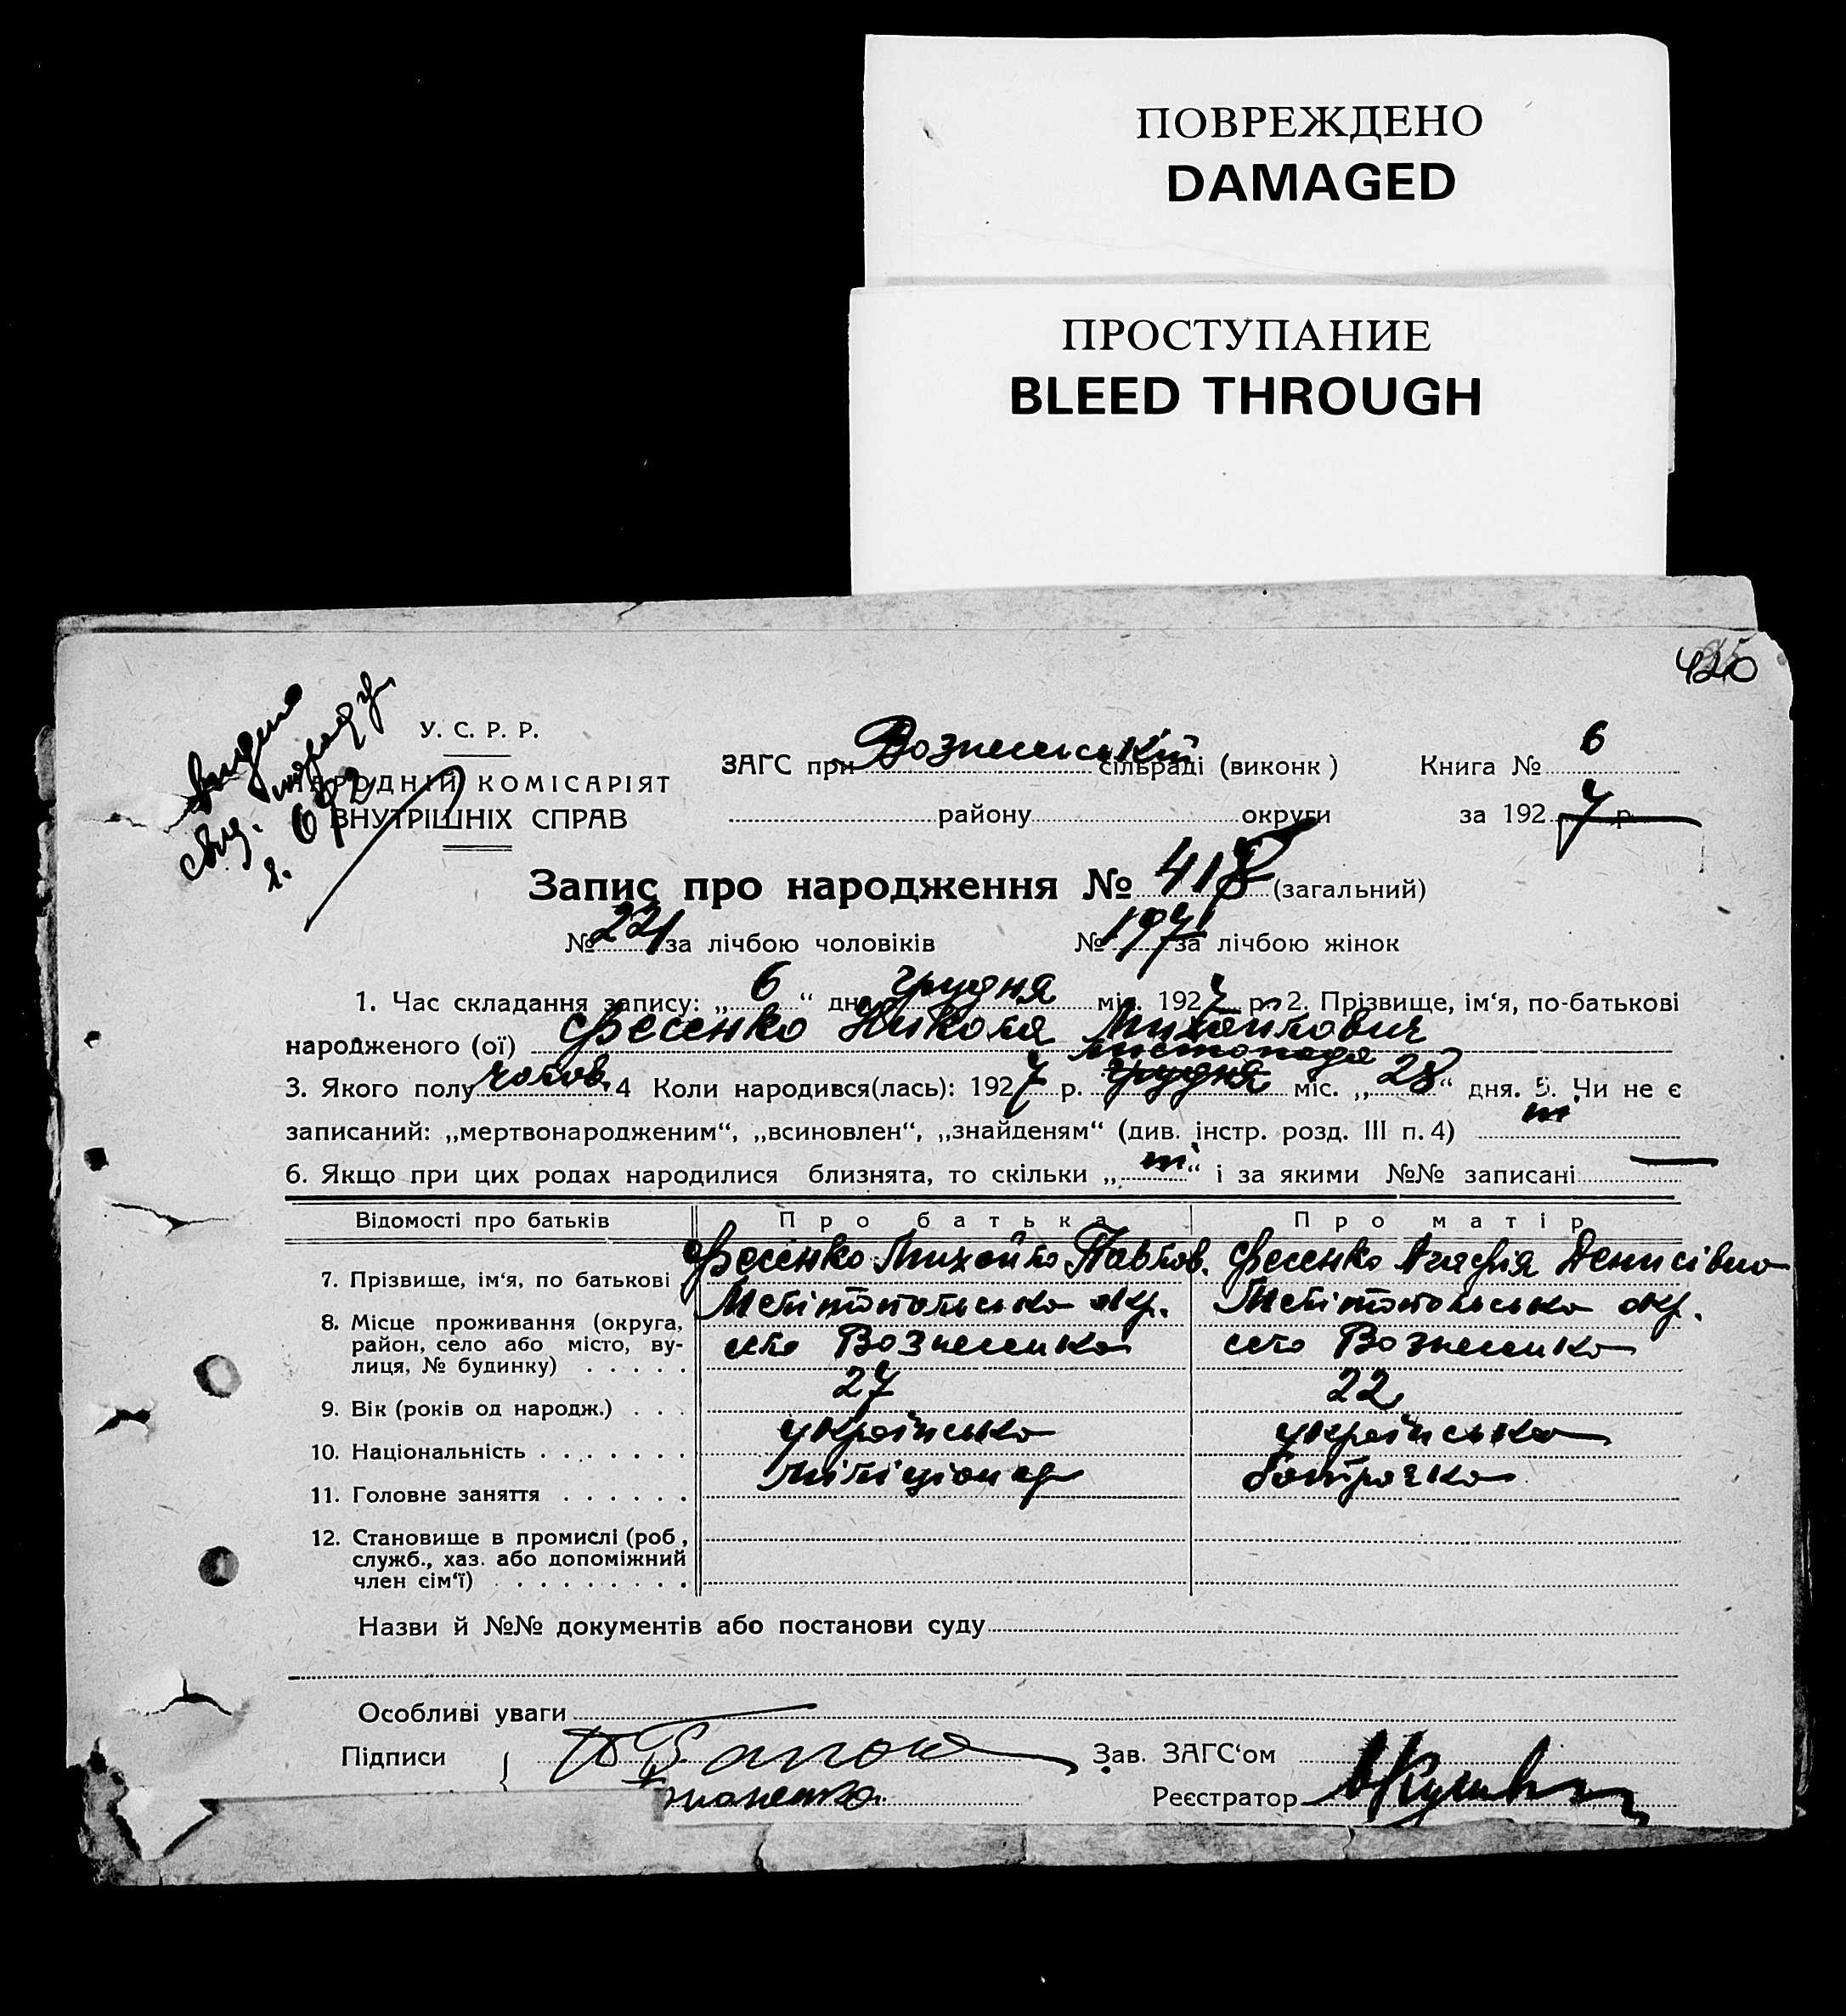 ПОВРЕЖДЕНО
DAMAGED
ПРОСТУПАНИЕ
BLEED THROUGH
420
видано
свид.
У. С. Р. Р.
НАРОДНІЙ КОМІСАРІЯТ
ВНУТРІШНІХ СПРАВ
ЗАГС при Вознесенській сільраді (виконк) Книга № 6
району округи за 1927 р.
Запис про народження № 418 (загальний)
№ 221 за лічбою чоловіків № 197 за лічбою жінок
1. Час складання запису: „6“ дня грудня міс. 1927 р. 2. Прізвище, ім‘я, по-батькові
народженого (ої) Фесенко Никола Михайлович
листопада
3. Якого полу чолов. 4 Коли народився(лась): 1927 р. грудня міс. „28“ дня. 5. Чи не є
записаний: „мертвонародженим“, „всиновлен“, „знайденям“ (див. інстр. розд. III п. 4)
6. Якщо при цих родах народилися близнята, то скільки „ “ і за якими №№ записані
Відомості про батьків Про батька Про матір
7. Прізвище, ім‘я, по батькові Фесенко Михайло Павлов. Фесенко Агафія Денисівна
8. Місце проживання (округа, район, село або місто, вулиця, № будинку) Мелітопольська окр. Мелітопольська окр.
село Вознесенка село Вознесенка
9. Вік (років од народж.) 27 22
10. Національність українська українська
11. Головне заняття міліціонер батрачка
12. Становище в промислі (роб, служб., хаз. або допоміжний член сім‘ї)
Назви й №№ документів або постанови суду
Особливі уваги
Підписи Зав. ЗАГС‘ом
Реєстратор